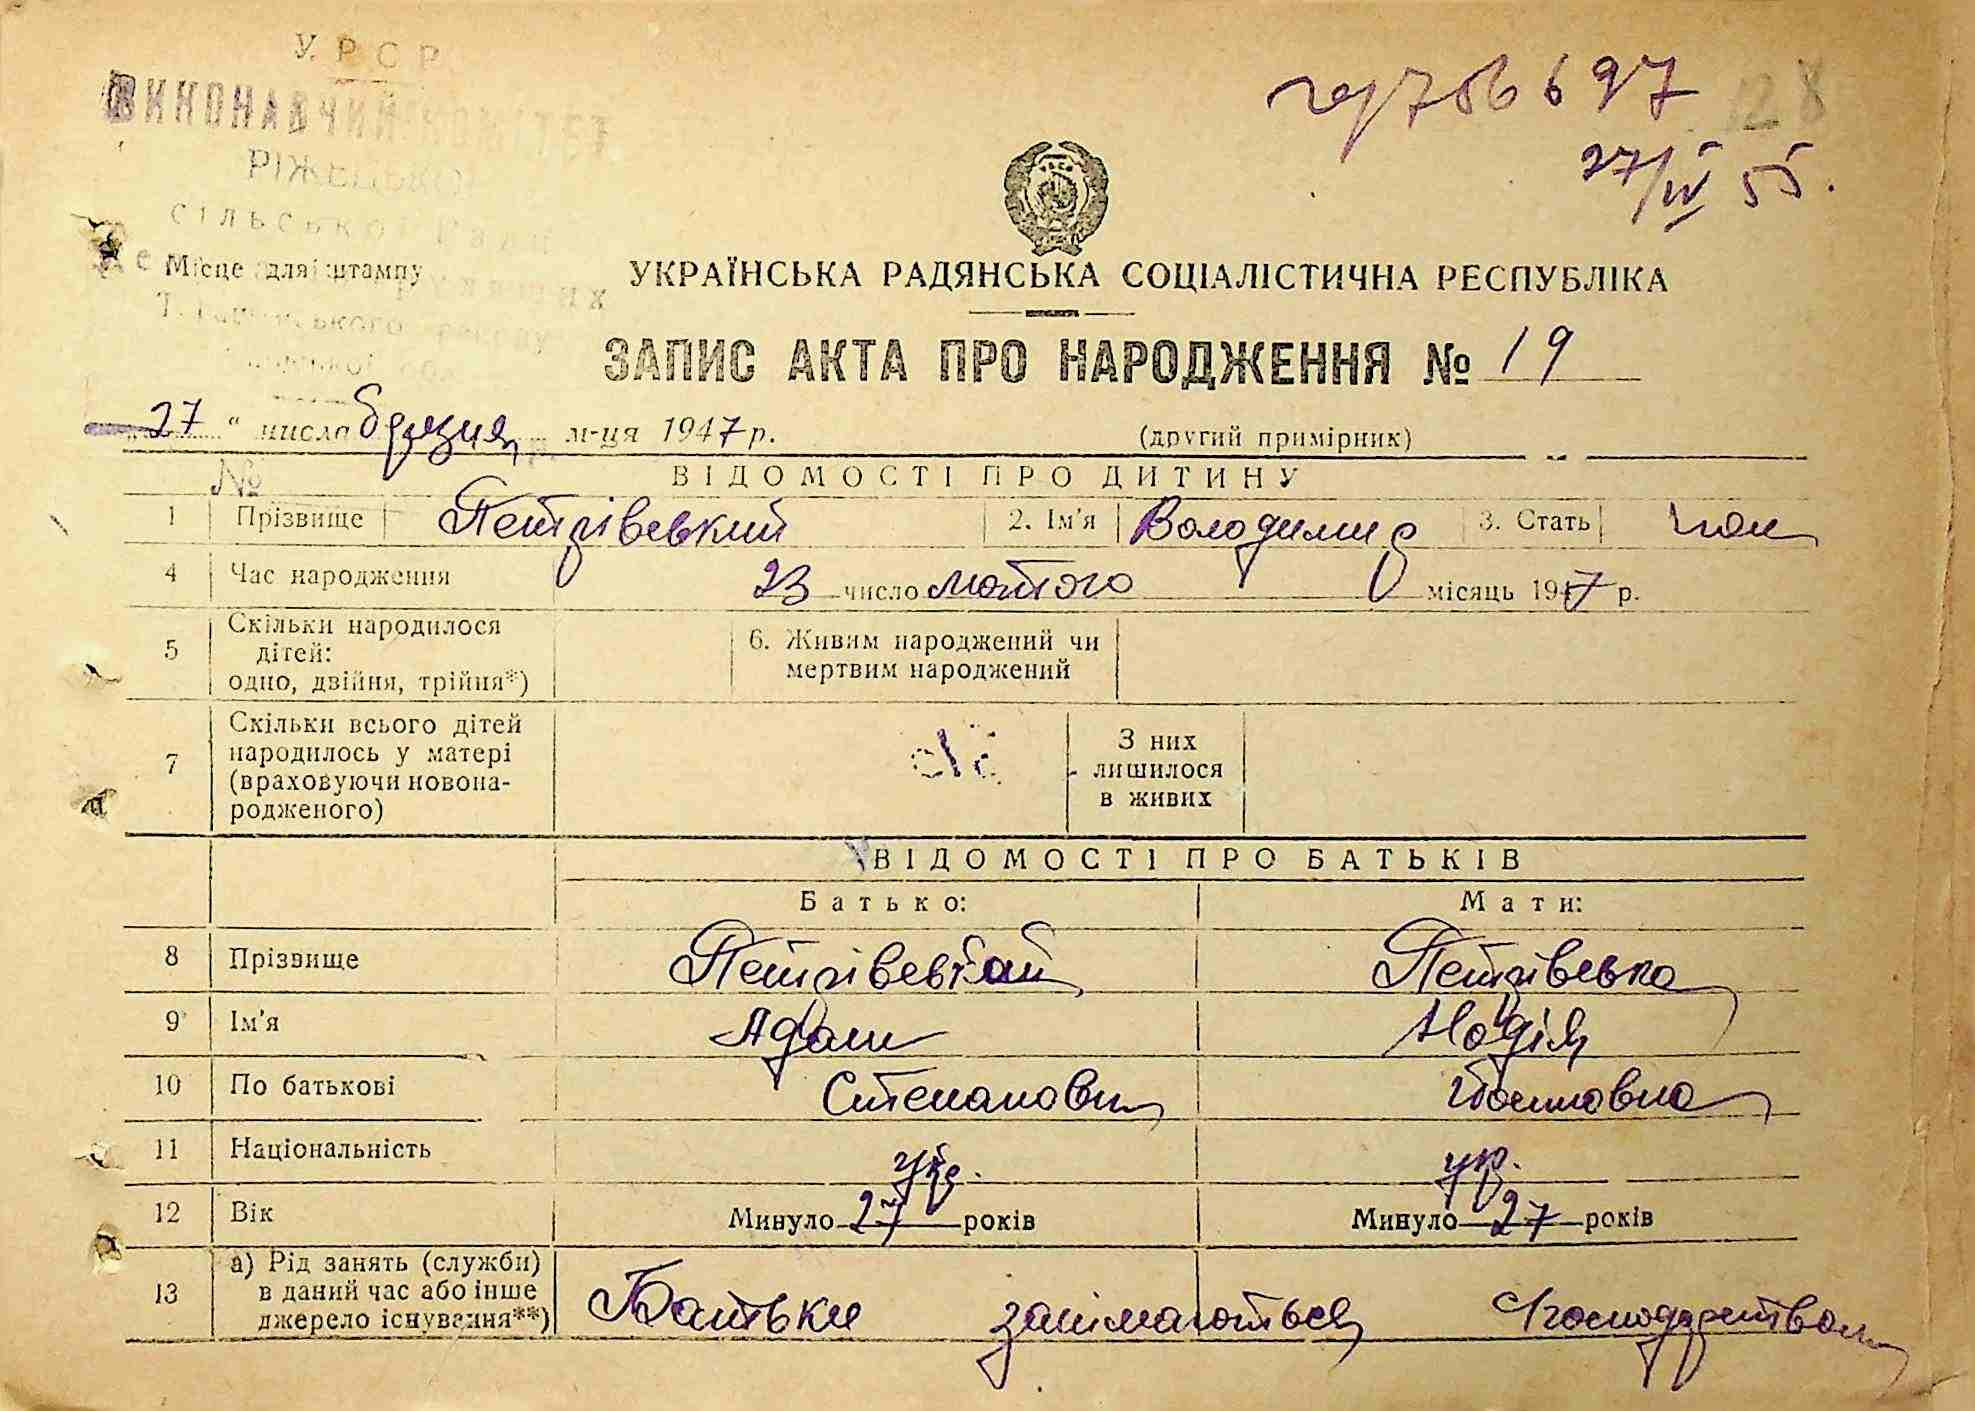 У. Р С Р
ВИКОНАВЧИЙ КОМІТЕТ
сільської Ради
Місце для штампу
756697
128
27/IV 55.
УКРАЇНСЬКА РАДЯНСЬКА СОЦІАЛІСТИЧНА РЕСПУБЛІКА
ЗАПИС АКТА ПРО НАРОДЖЕННЯ № 19
27 " числа березня м-ця 1947 р.
(другий примірник)
№
ВІДОМОСТІ ПРО ДИТИНУ
1 Прізвище Петрівський 2. Ім'я Володимир 3. Стать чол
4 Час народження 23 число лютого місяць 1947 р.
5 Скільки народилося дітей: одно, двійня, трійня*) 6. Живим народжений чи мертвим народжений
7 Скільки всього дітей народилось у матері (враховуючи новонародженого) З них лишилося в живих
ВІДОМОСТІ ПРО БАТЬКІВ
Батько: Мати:
8 Прізвище Петрівський Петрівська
9 Ім'я Адам Надія
10 По батькові Степанович
11 Національність укр. укр.
12 Вік Минуло 27 років Минуло 27 років
13 а) Рід занять (служби) в даний час або інше джерело існування**) Батьки займаються господарством